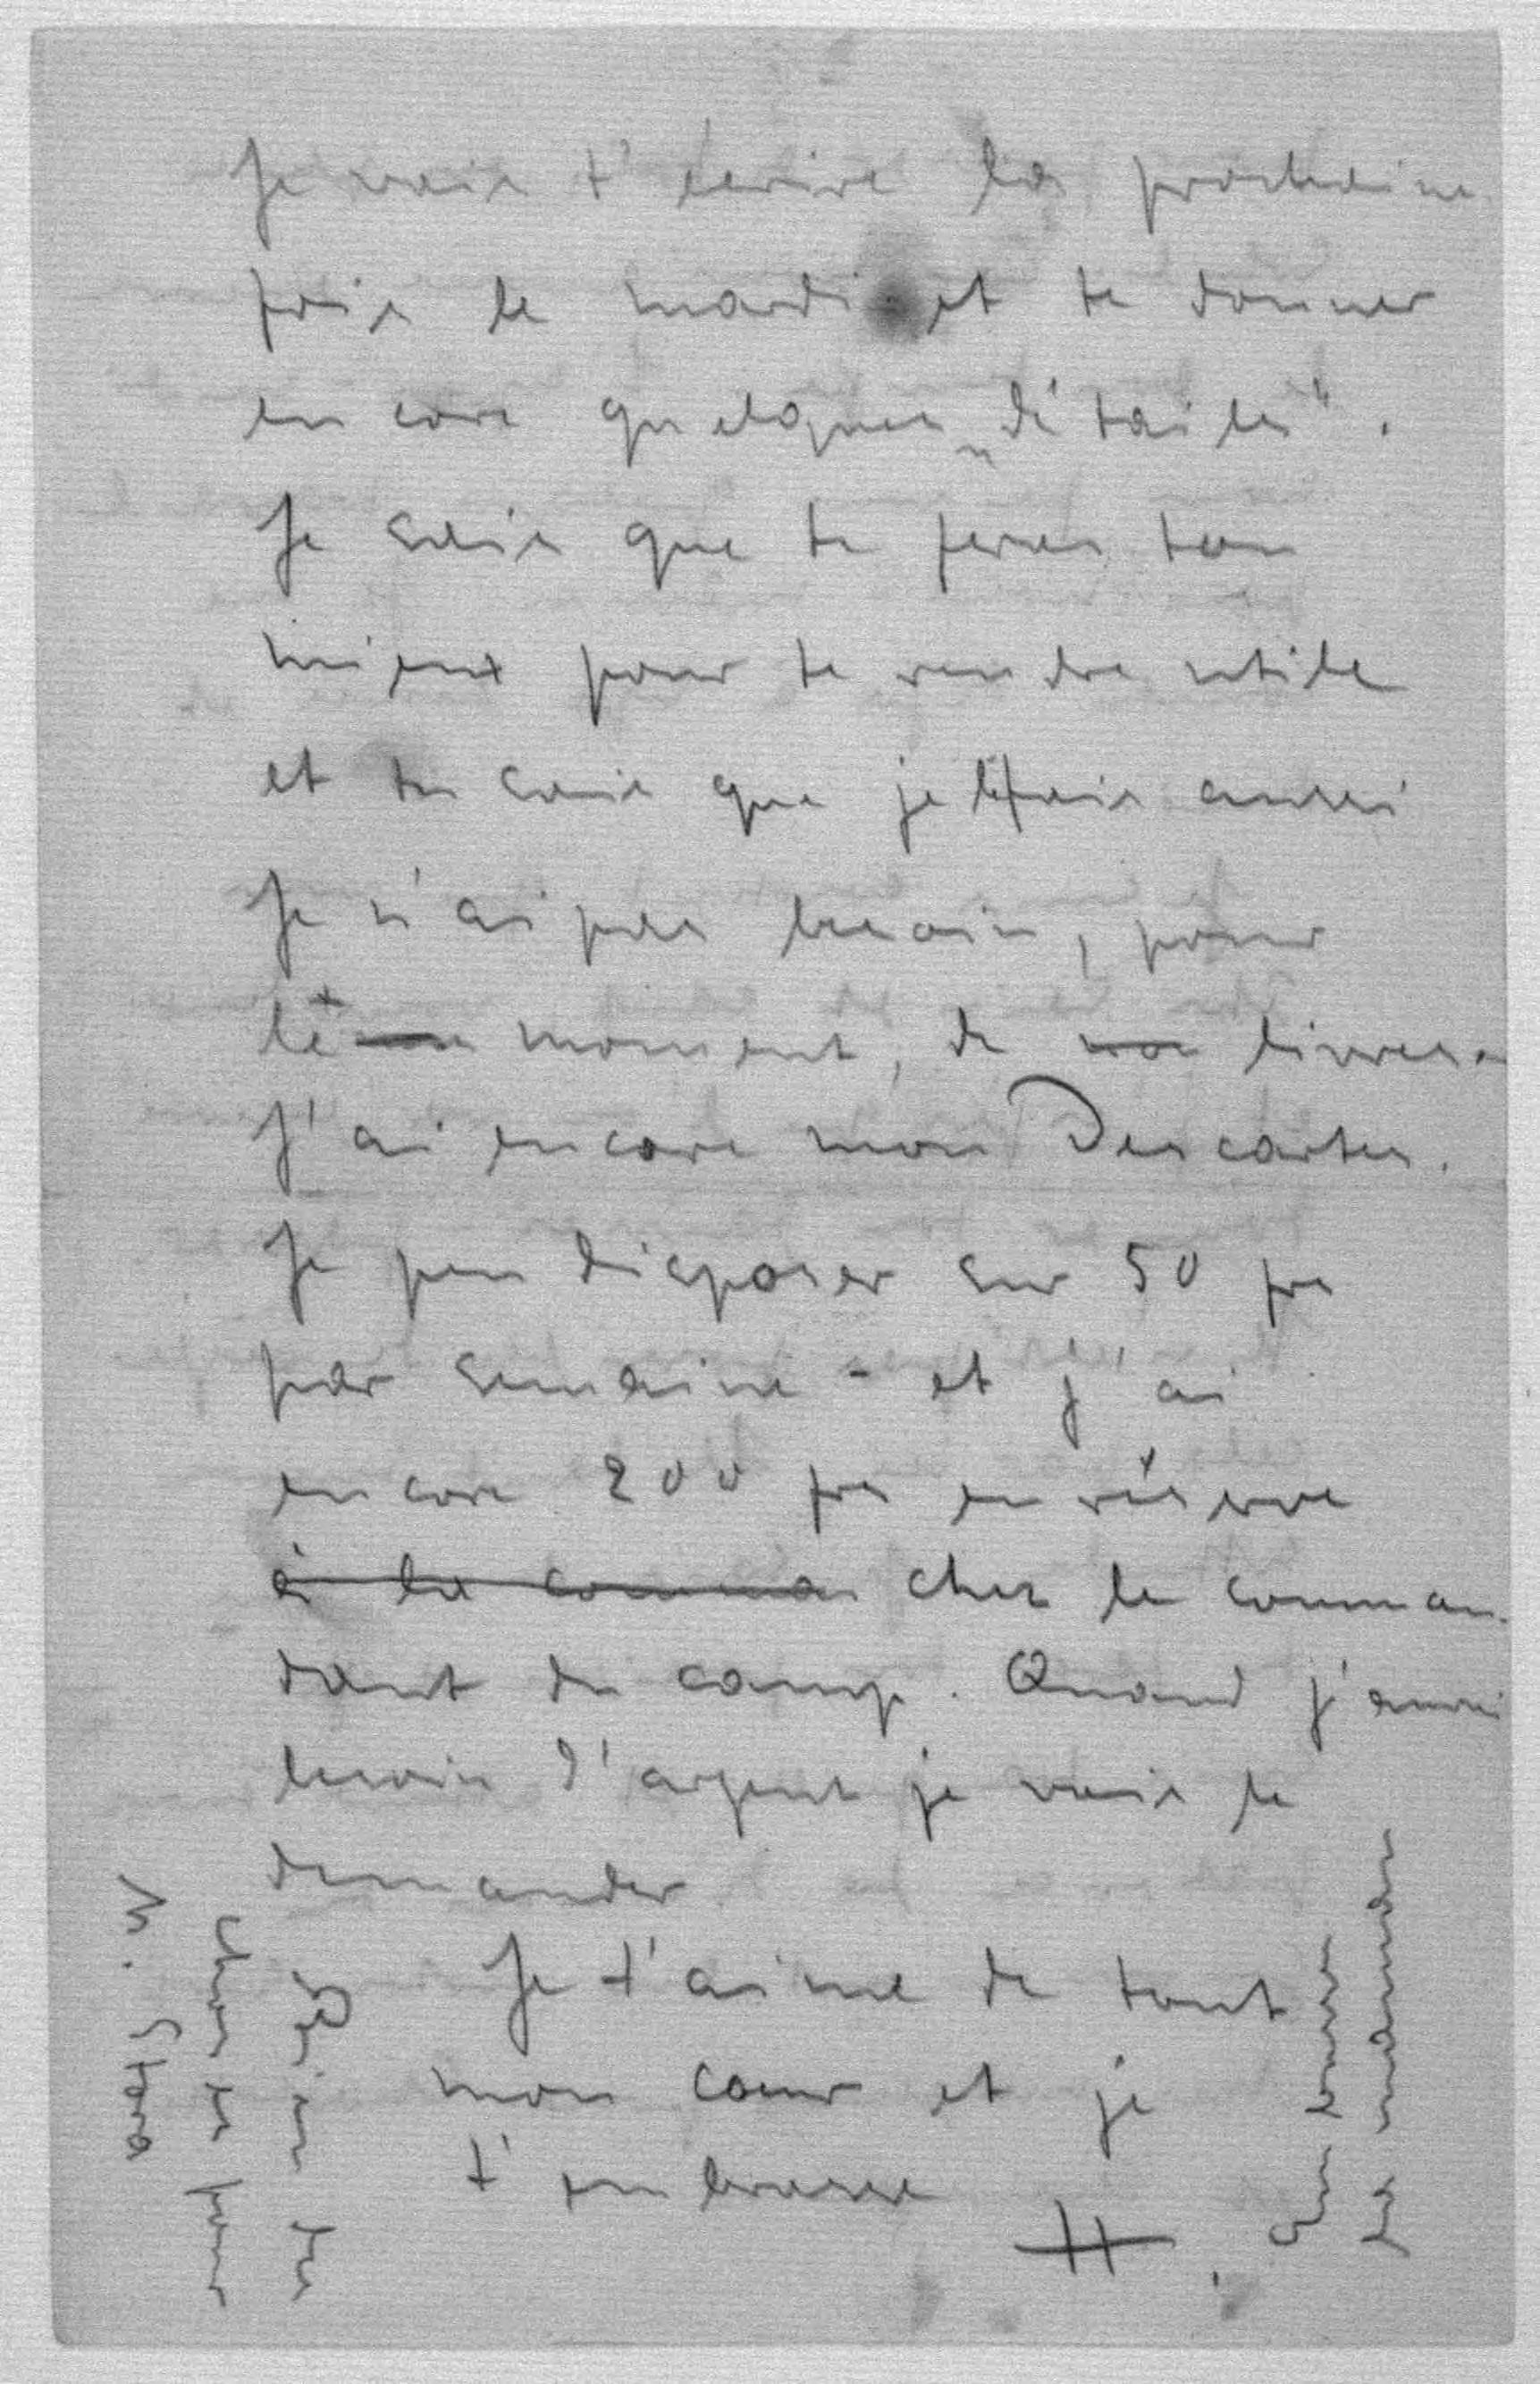 Je vais t'écrire la prochaine
fois le mardi et te donner
encore quelques „détailes".
Je sais que tu feras ton
mieux pour te rendre utile
et tu sais que je le fais aussi
Je n'ai pas besoin, pour
le moment, de livres.
J'ai encore mon Descartes.
Je peu disposer sur 50 frs
par semaine - et j'ai
encore 200 frs en réserve
à la comman chez le comman-
dant du camp. Quand j'aurai
besoin d'argent je vais te
demander
Je t'aime de tout
mon cœur et je
t'embrasse
H.